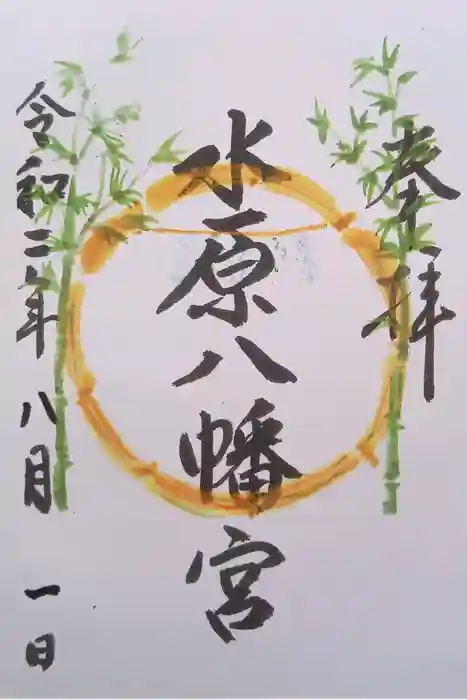 奉拝
水原八幡宮
令和二年 八月 一日